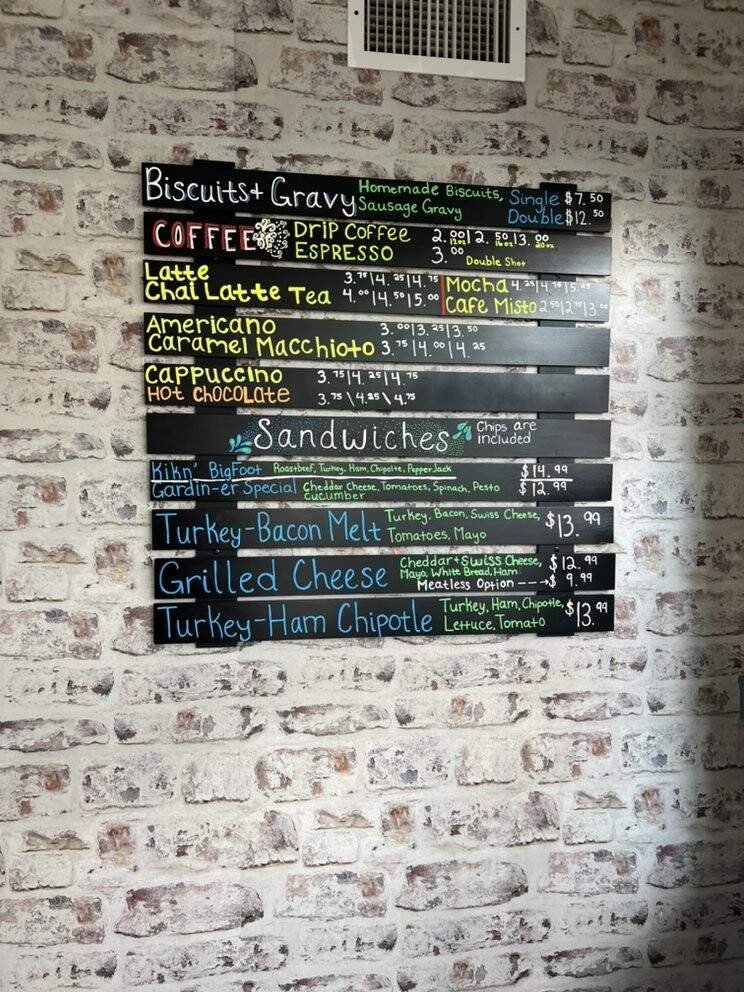 Biscuits + Gravy Homemade Biscuits, Single $7.50
Sausage Gravy Double $12.50
COFFEE DRIP COFFEE 2.00|2.50|3.00
12oz 16oz 20oz
ESPRESSO 3.00 Double Shot
Latte 3.75|4.25|4.75 Mocha 4.25|4.75|5.25
Chai Latte Tea 4.00|4.50|5.00 Cafe Misto 2.50|2.75|3.00
Americano 3.00|3.25|3.50
Caramel Macchioto 3.75|4.00|4.25
Cappuccino 3.75|4.25|4.75
HOT CHOCOLATE 3.75\4.25\4.75
Sandwiches Chips are
included
Kikn' BigFoot Roastbeef, Turkey, Ham, Chipolte, PepperJack $14.99
Gardin-er Special Cheddar Cheese, Tomatoes, Spinach, Pesto $12.99
Cucumber
Turkey-Bacon Melt Turkey, Bacon, Swiss Cheese, $13.99
Tomatoes, Mayo
Grilled Cheese Cheddar+Swiss Cheese, $12.99
Mayo, White Bread, Ham
Meatless Option --→$ 9.99
Turkey-Ham Chipotle Turkey, Ham, Chipotle, $13.99
Lettuce, Tomato